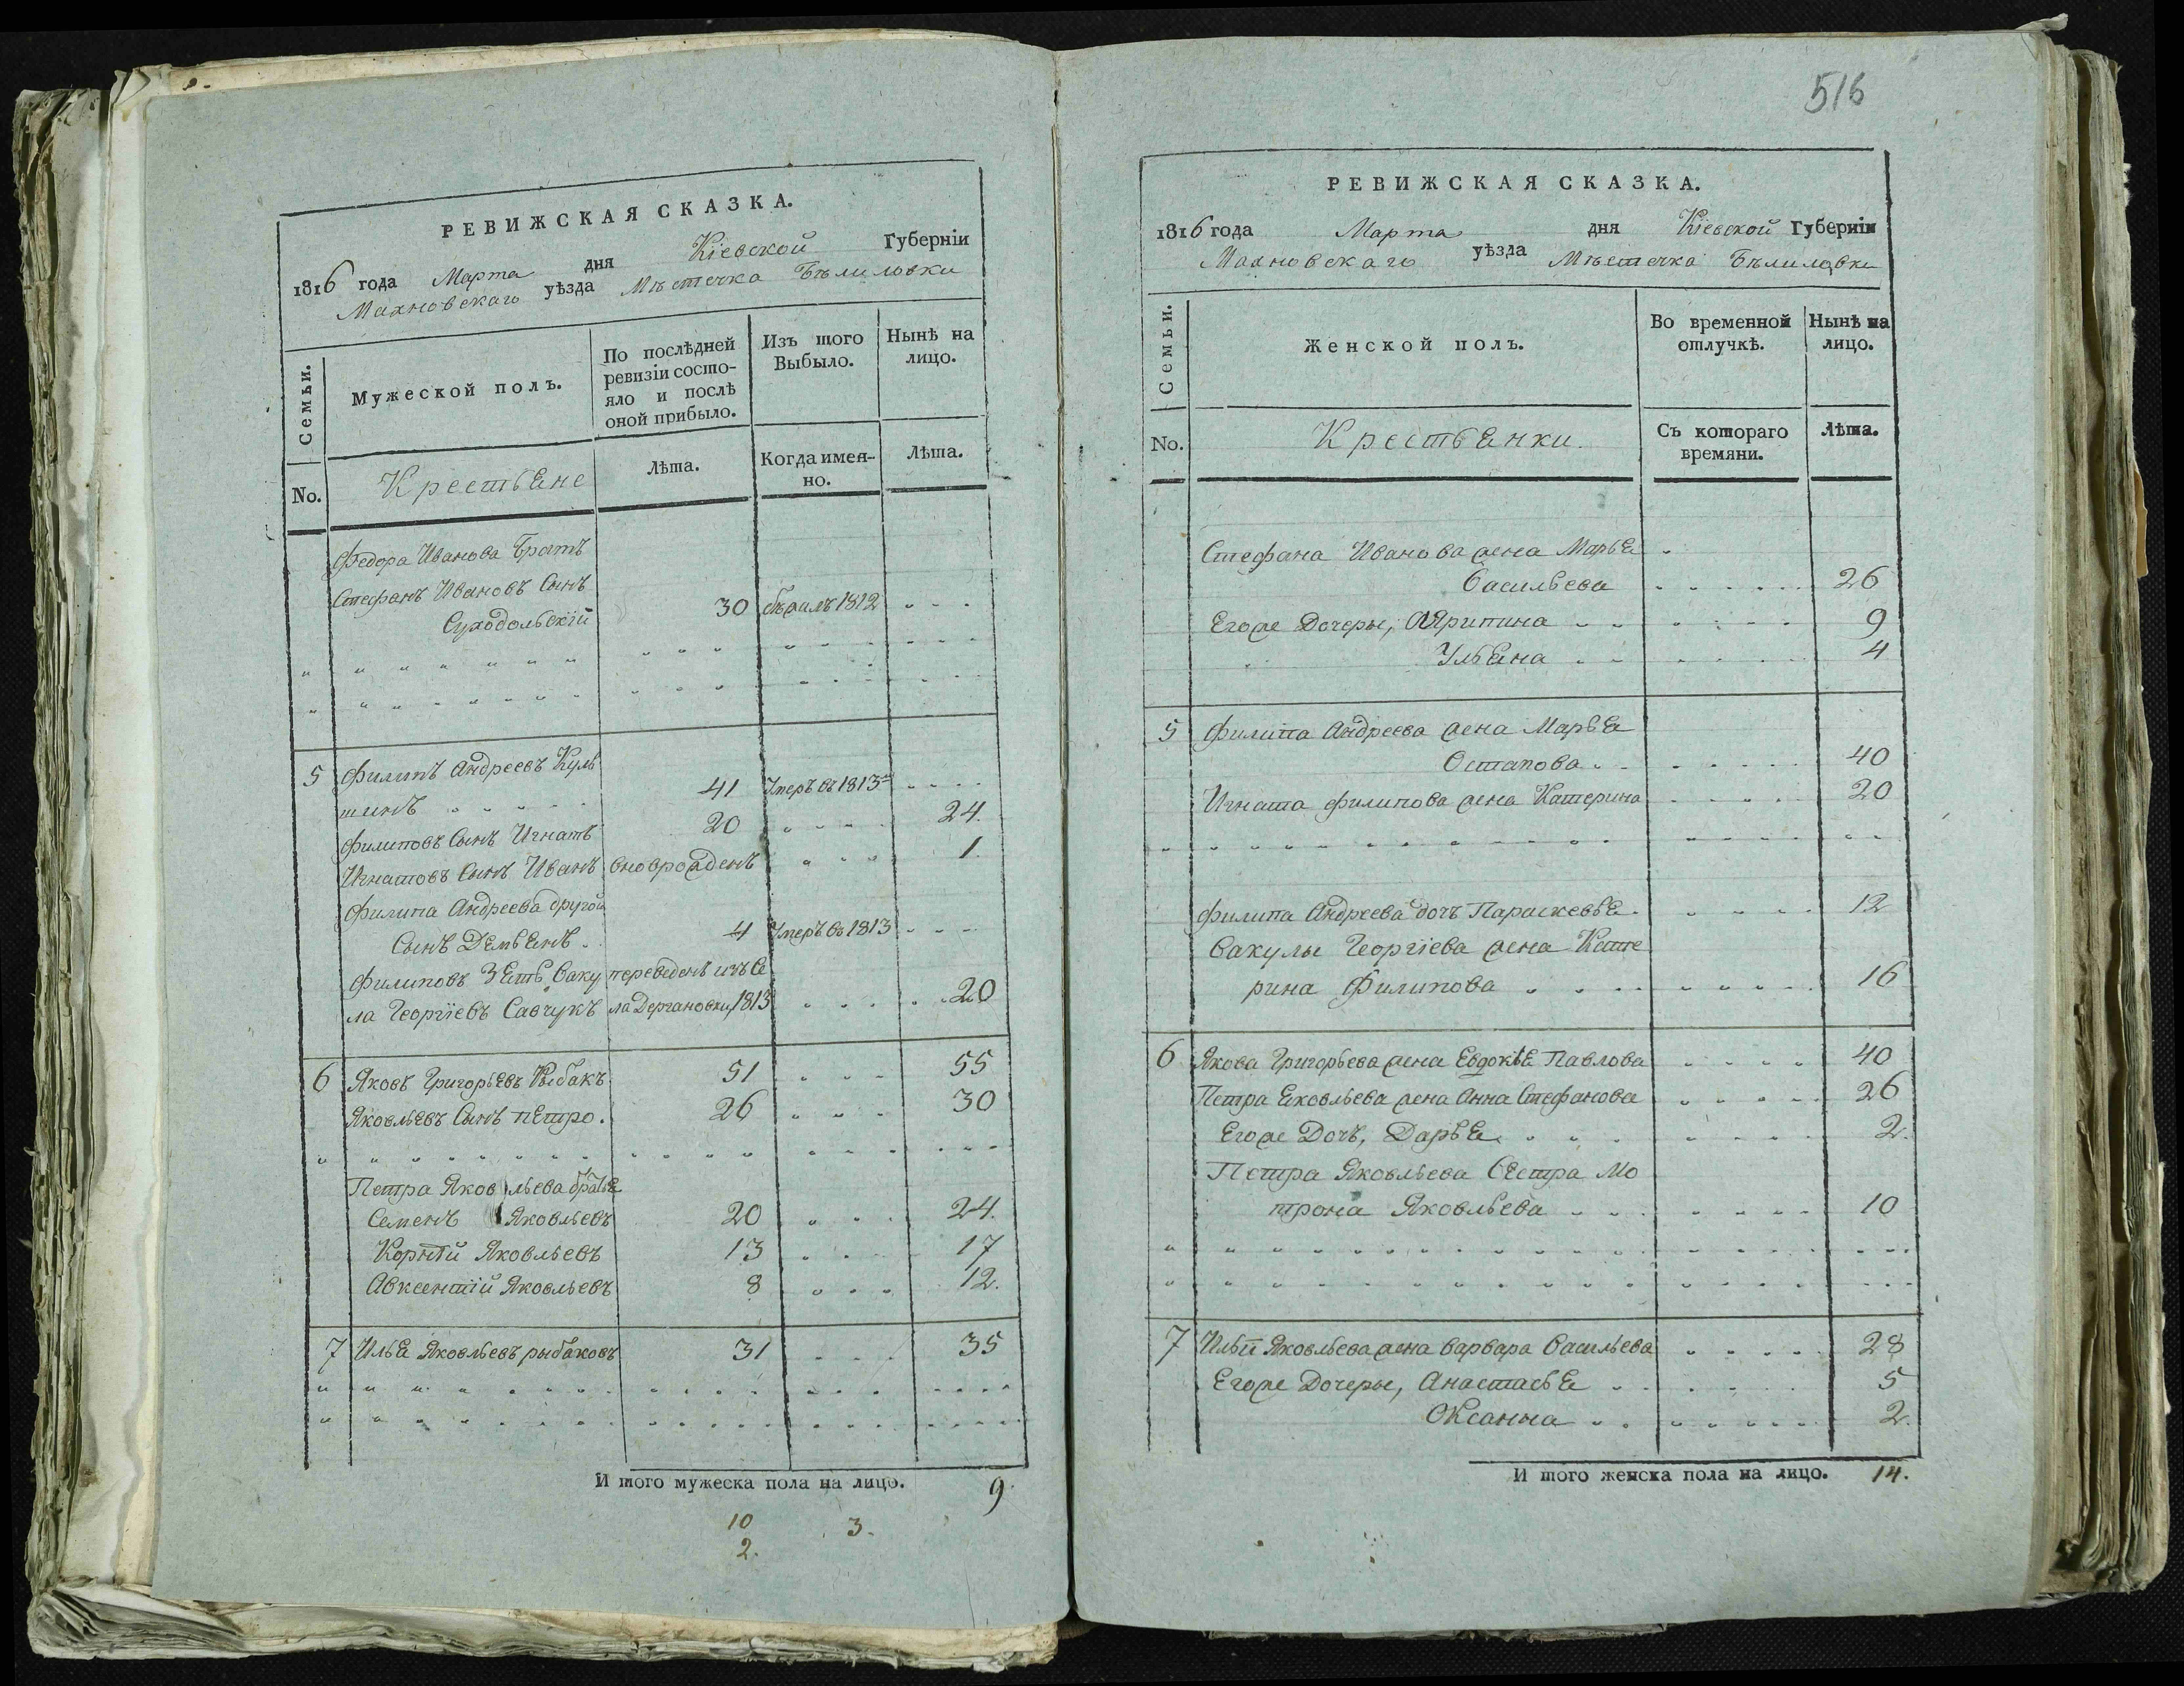 РЕВИЖСКАЯ СКАЗКА.
1816 года Марта дня Кіевской Губерніи
Махновскаго уѣзда Мѣстечка Бѣлиловки
Семьи.
Мужеской полъ.
По послѣдней ревизіи состояло и послѣ оной прибыло.
Изъ того Выбыло.
Нынѣ на лицо.
No.
Крестьяне
Лѣта.
Когда именно.
Лѣта.
Федора Иванова Братъ
Стефанъ Ивановъ Сынъ
Суходольскій 30 бѣжалъ 1812
5 Филипъ Андреевъ Куль
шинъ 41 Умеръ въ 1813
Филиповъ Сынъ Игнатъ 20 24.
Игнатовъ Сынъ Иванъ вноврожденъ 1.
Филипа Андреева другой
Сынъ Демьянъ 4 Умеръ въ 1813
Филиповъ Зять Ваку переведенъ изъ Се
ла Георгіевъ Савчукъ ла Дергановки 1813 20
6 Яковъ Григорьевъ Рыбакъ 51 55
Яковльевъ Сынъ Петро. 26 30
Петра Яковльева братья
Семенъ Яковльевъ 20 24.
Корнѣй Яковльевъ 13 17
Авксентій Яковльевъ 8 12.
7 Илья Яковльевъ рыбаковъ 31 35
И того мужеска пола на лицо. 9
10 3.
2.
516
РЕВИЖСКАЯ СКАЗКА.
1816 года Марта дня Кіевской Губерніи
Махновскаго уѣзда Мѣстечка Бѣлиловки
Семьи.
Женской полъ.
Во временной отлучкѣ.
Нынѣ на лицо.
No.
Крестьянки
Съ котораго времяни.
Лѣта.
Стефана Иванова жена Марья
Васильева 26
Егоже Дочеры, Ярипина 9
Ульяна 4
5 Филипа Андреева жена Марья
Остапова 40
Игната Филипова жена Катерина 20
Филипа Андреева дочь Параскевья 12
Вакулы Георгіева жена Кате
рина Филипова 16
6 Якова Григорьева жена Евдокья Павлова 40
Петра Яковльева жена Анна Стефанова 26
Егоже Дочь, Дарья 2.
Петра Яковльева Сестра Мо
трона Яковльева 10
7 Ильи Яковльева жена Варвара Васильева 28
Егоже Дочеры, Анастасья 5
Оксанна 2.
И того женска пола на лицо. 14.